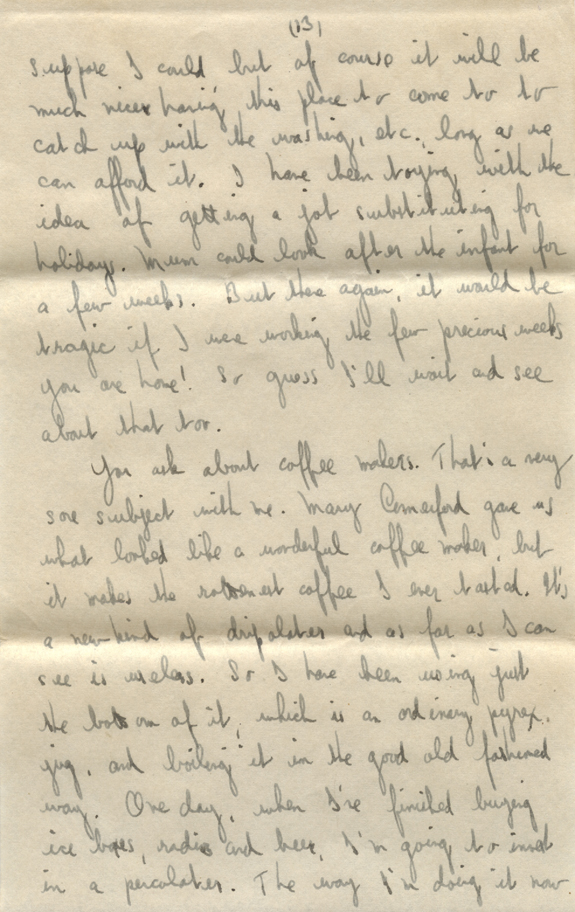 (13)
suppose I could but of course it will be
much nicer having this place to come to to
catch up with the washing, etc., long as we
can afford it. I have been toying with the
idea of getting a job substituting for
holidays. Mum could look after the infant for
a few weeks. But there again, it would be
tragic if I were working the few precious weeks
you are home! So guess I'll wait and see
about that too.
You ask about coffee makers. That's a very
sore subject with me. Mary Comerford gave us
what looked like a wonderful coffee maker, but
it makes the rottenest coffee I ever tasted. It's
a new kind of dripolater and as far as I can
see is useless. So I have been using just
the bottom of it, which is an ordinary pyrex.
jug, and boiling it in the good old fashioned
way. One day, when I've finished buying
ice boxes, radios and beer, I'm going to invest
in a percolater. The way I'm doing it now